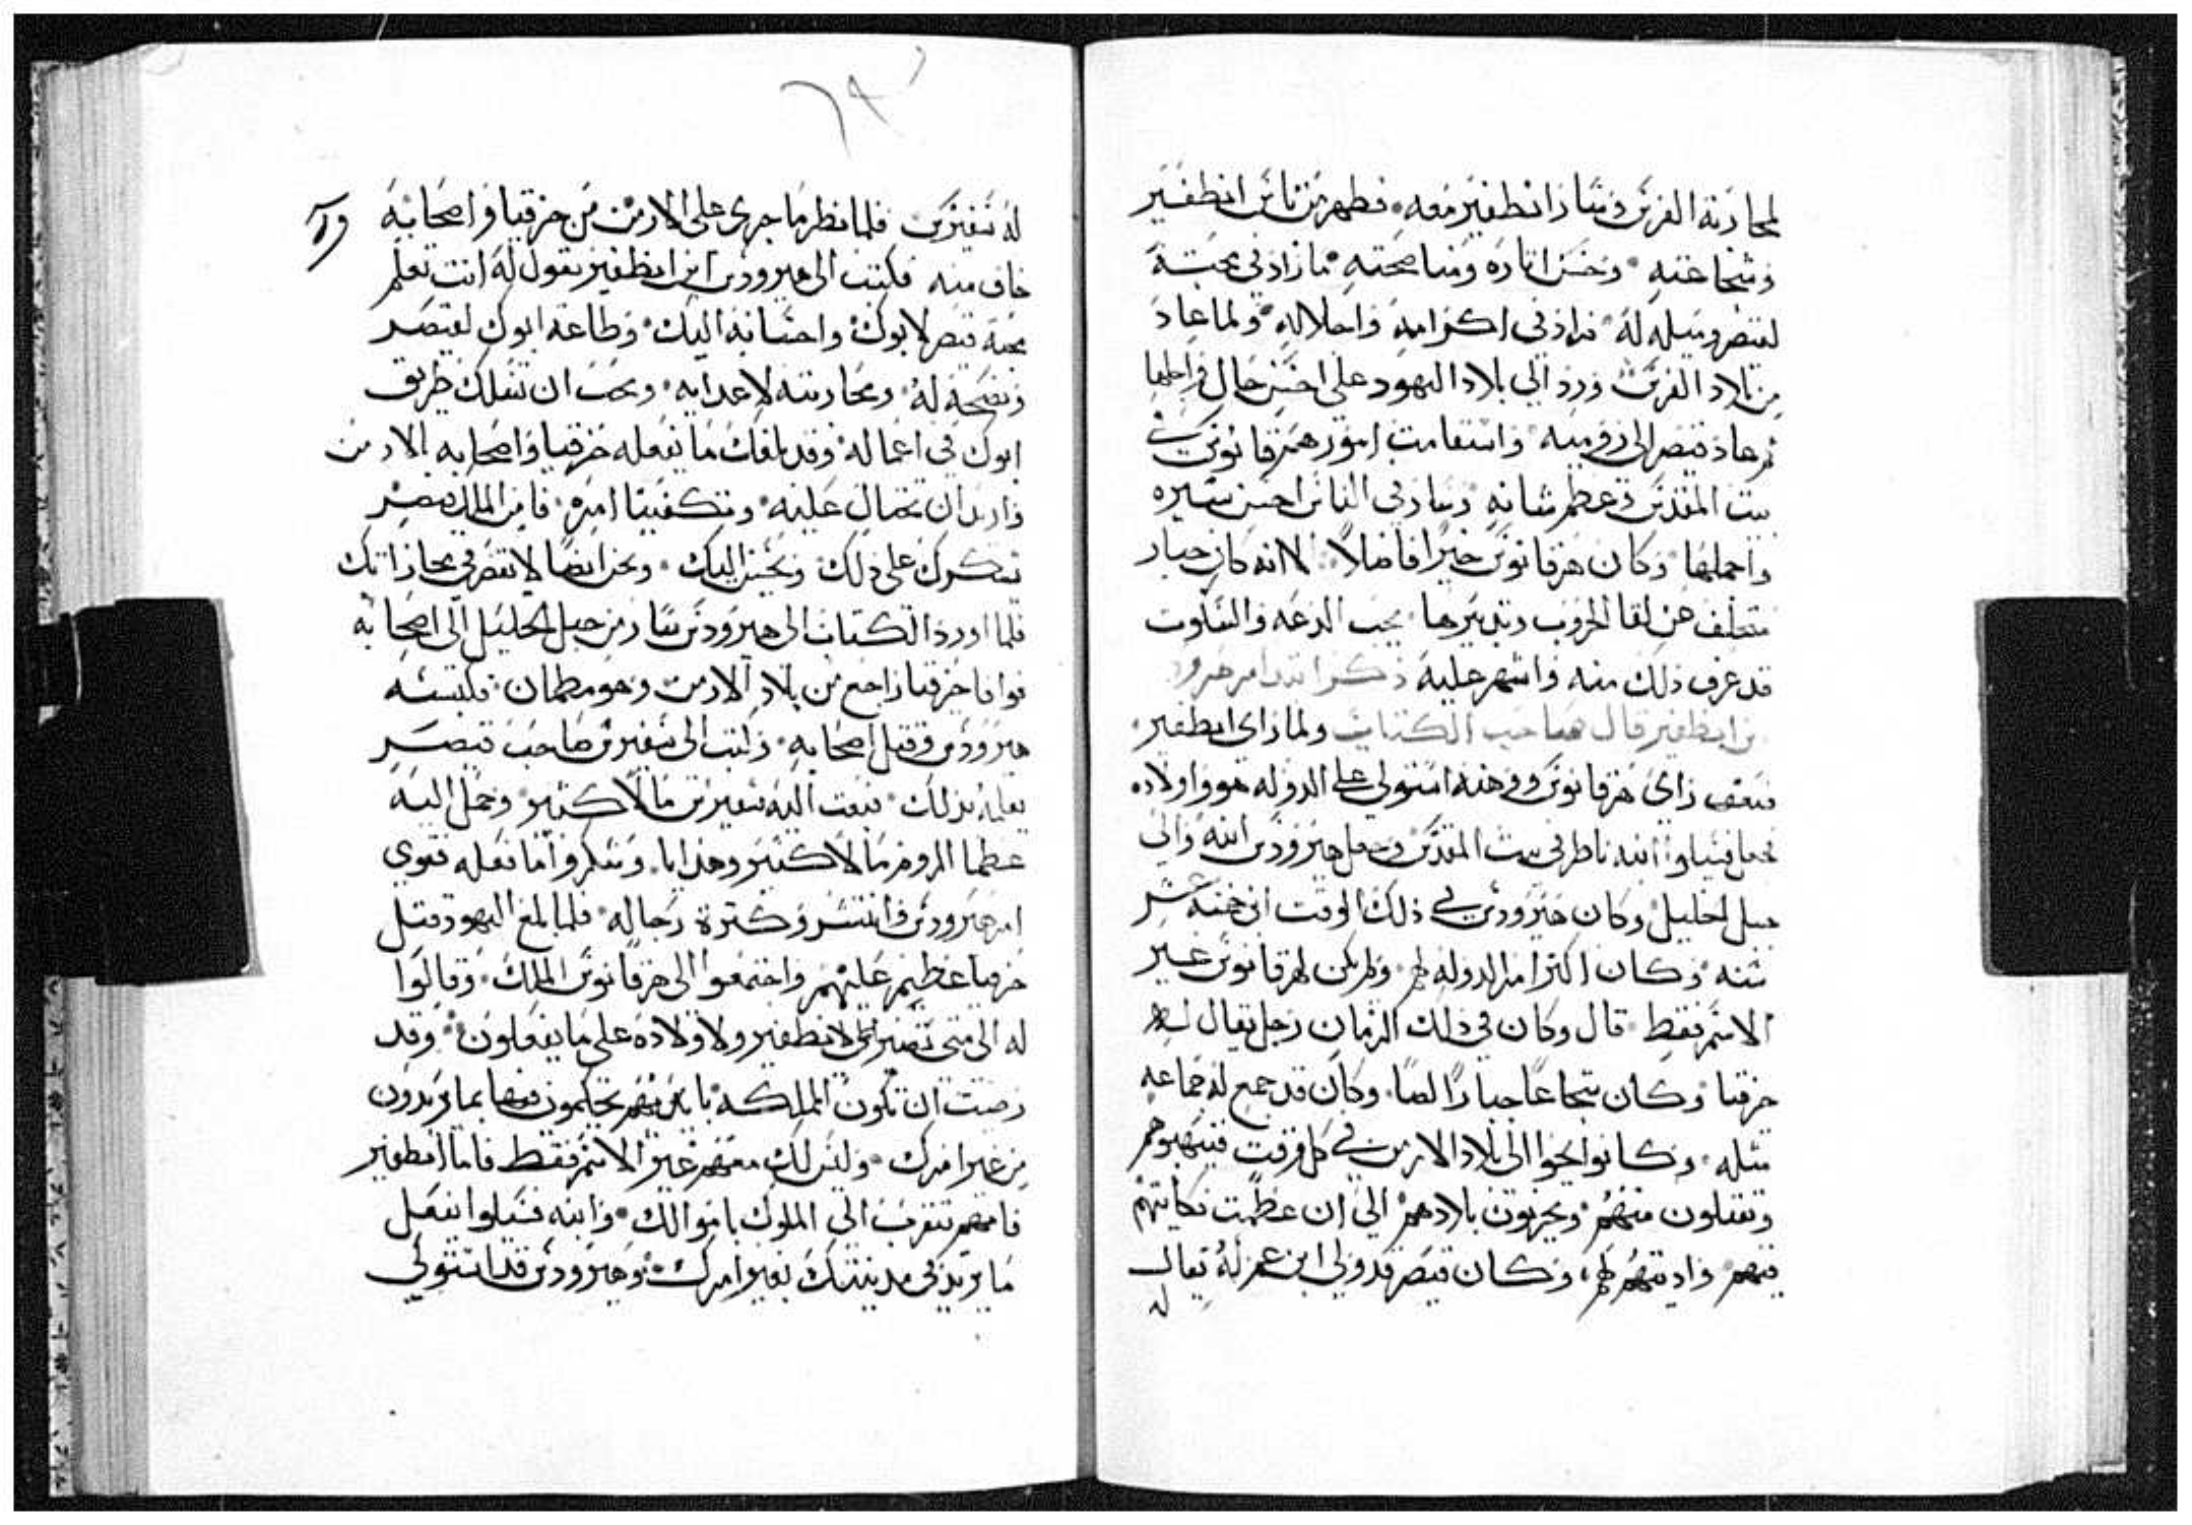 لمحاربة الفرس وسار انطفير معه فظهر من باس انطفير
وشجاعته وحسن اثاره ومناصحته ما زاد في محبته
لقيصر وميله له فزاد في اكرامه واجلاله ولما عاد
من بلاد الفرس ورد الى بلاد اليهود على احسن حال واجملها
ثم عاد قيصر الى روميه واستقامت امور هرقانوس في
بيت المقدس وعظم شانه وسار في الناس احسن سيره
واجملها وكان هرقانوس خيرا فاضلا الا انه كان
متخلف عن لقا الحروب وتدبيرها يحب الدعه والسكوت
قد عرف ذلك منه واشهر عليه ذكر ابتدا امر هيرود
بن انطفير قال صاحب الكتاب ولما راى انطفير
ضعف راى هرقانوس ووهنه استولى على الدوله هو واولاده
فجعل فسيلوا ابنه ناظر في بيت المقدس وجعل هيرودس ابنه والي
جبل الخليل وكان هيرودس في ذلك الوقت ابن خمسه عشر
سنه وكان اكثر امر الدوله لهم ولم يكن لهرقانوس غير
الاسم فقط قال وكان في ذلك الزمان رجل يقال له
حزقيا وكان شجاعا جبارا لصا وكان قد جمع له جماعه
مثله وكانوا الى بلاد الارمن في كل وقت فينهبوهم
ويقتلون منهم ويخربون بلادهم الى ان عظمت نكايتهم
فيهم واديتهم لهم وكان قيصر قد ولى ابن عم له يقال
له
له سفيرس فلما نظر ما جرى على الارمن من حزقيا واصحابه
خاف منه فكتب الى هيرودس ابن انطفير يقول له انت تعلم
محبة قيصر لابوك واحسانه اليك وطاعة ابوك لقيصر
ونصحه له ومحاربته لاعدايه ويجب ان تسلك طريق
ابوك في اعماله وقد بلغك ما يفعله حزقيا واصحابه الارمن
واريد ان تحتال عليه وتكفينا امره فان الملك قيصر
يشكرك على ذلك ويحسن اليك ونحن ايضا لا نقصر في مجازاتك
فلما اورد الكتاب الى هيرودس سار من جبل الخليل الى اصحابه
فوافا حزقيا راجع من بلاد الارمن وهو مطمان فكبسه
هيرودس وقتل اصحابه وكتب الى سفيرس صاحب قيصر
يعلمه بذلك فبعث اليه سفيرس مالا كثير وحمل اليه
عظما الروم مالا كثير وهدايا وشكروا ما فعله فقوي
امر هيرودس وانتشر وكثرة رجاله فلما بلغ اليهود قتل
حزقيا عظم عليهم واجتمعوا الى هرقانوس الملك وقالوا
له الى متى تصبر لانطفير ولاولاده على ما يفعلون وقد
رضيت ان تكون المملكه يتحكمون فيها بما يريدون
من غير امرك وليس لك معهم غير الاسم فقط فاما انطفير
يتقرب الى الملوك باموالك وابنه فسيلوا يفعل
ما يريد في مدينتك بغير امرك وهيرودس قد استولي